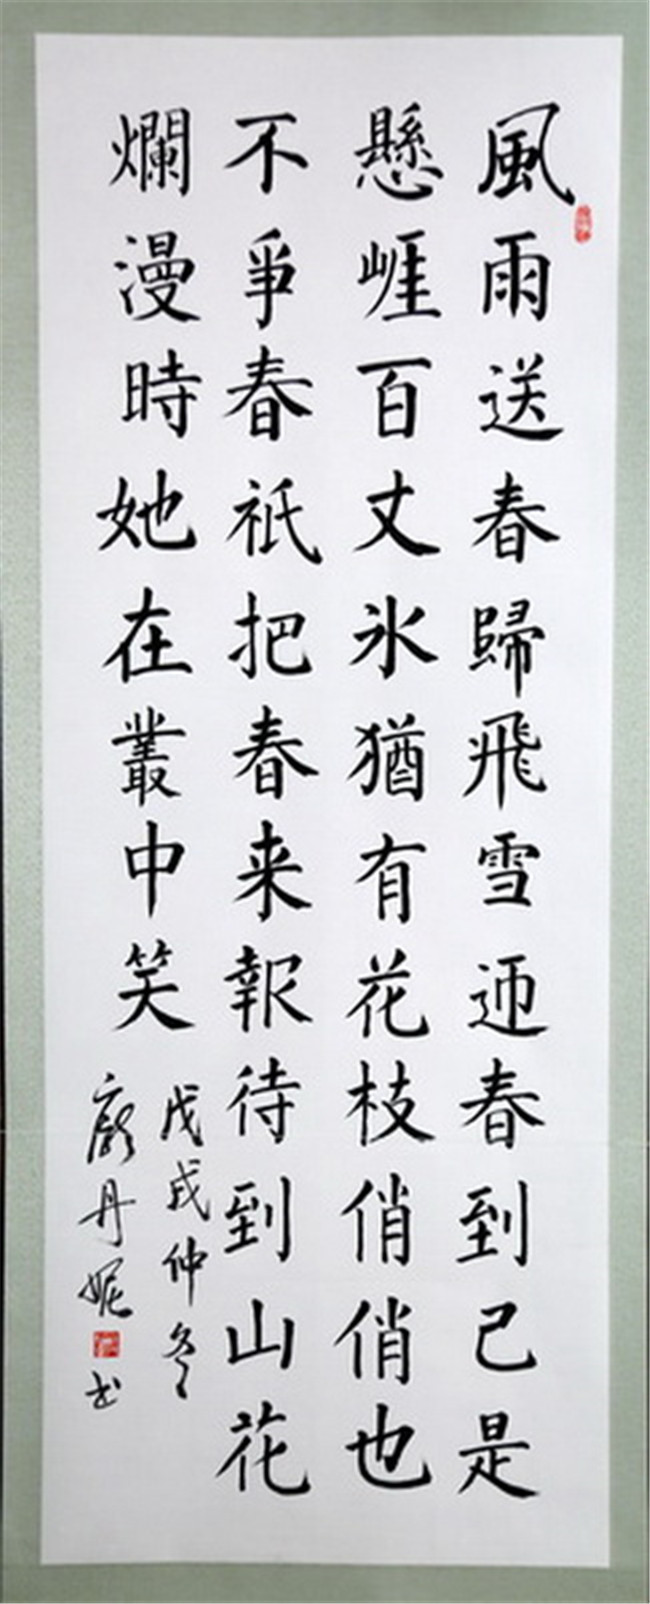 風雨送春歸飛雪迊春到已是
懸崕百丈氷猶有花枝俏俏也
不爭春祇把春来報待到山花
爛漫時她在叢中笑
戊戌仲冬
丹妮书